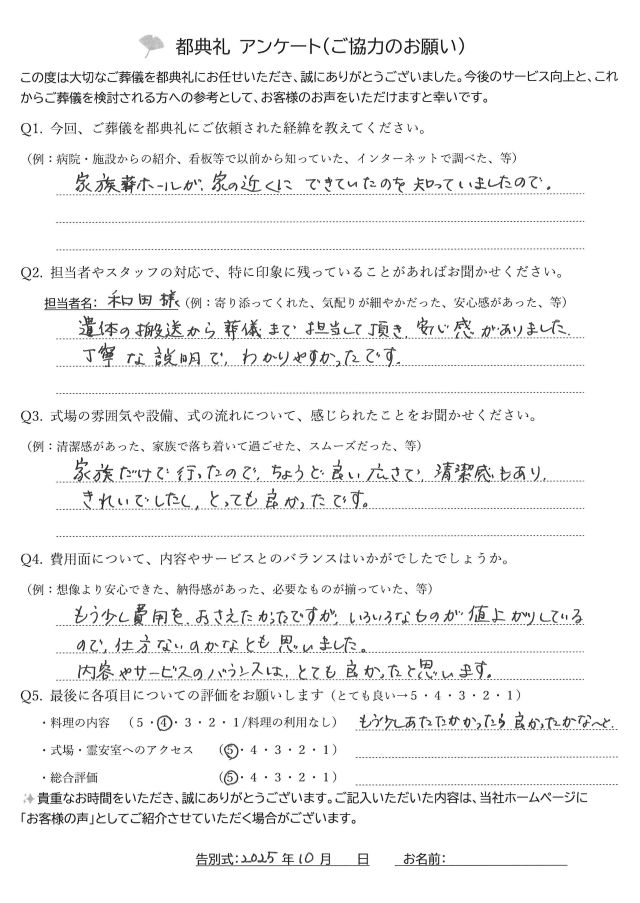 都典礼 アンケート(ご協力のお願い)
この度は大切なご葬儀を都典礼にお任せいただき、誠にありがとうございました。今後のサービス向上と、これ
からご葬儀を検討される方への参考として、お客様のお声をいただけますと幸いです。
Q1. 今回、ご葬儀を都典礼にご依頼された経緯を教えてください。
(例：病院・施設からの紹介、看板等で以前から知っていた、インターネットで調べた、等)
家族葬ホールが、家の近くに できていたのを 知っていましたので。
Q2. 担当者やスタッフの対応で、特に印象に残っていることがあればお聞かせください。
担当者名: 和田様 (例：寄り添ってくれた、気配りが細やかだった、安心感があった、等)
遺体の搬送から 葬儀まで 担当して頂き、安心感がありました。
丁寧な説明で、わかりやすかったです。
Q3. 式場の雰囲気や設備、式の流れについて、感じられたことをお聞かせください。
(例：清潔感があった、家族で落ち着いて過ごせた、スムーズだった、等)
家族だけで行ったので、ちょうど良い広さで、清潔感もあり、
きれいでしたし、とっても良かったです。
Q4. 費用面について、内容やサービスとのバランスはいかがでしたでしょうか。
(例：想像より安心できた、納得感があった、必要なものが揃っていた、等)
もう少し費用を、おさえたかったですが、いろいろなものが値上がりしている
ので、仕方ないのかなとも思いました。
内容やサービスのバランスは、とても良かったと思います。
Q5. 最後に各項目についての評価をお願いします (とても良い→5・4・3・2・1)
・料理の内容 (5・④・3・2・1/料理の利用なし) もう少しあたたかかったら良かったかな〜と、
・式場・霊安室へのアクセス (⑤・4・3・2・1)
・総合評価 (⑤・4・3・2・1)
貴重なお時間をいただき、誠にありがとうございます。ご記入いただいた内容は、当社ホームページに
「お客様の声」としてご紹介させていただく場合がございます。
告別式：2025年10月 日 お名前：